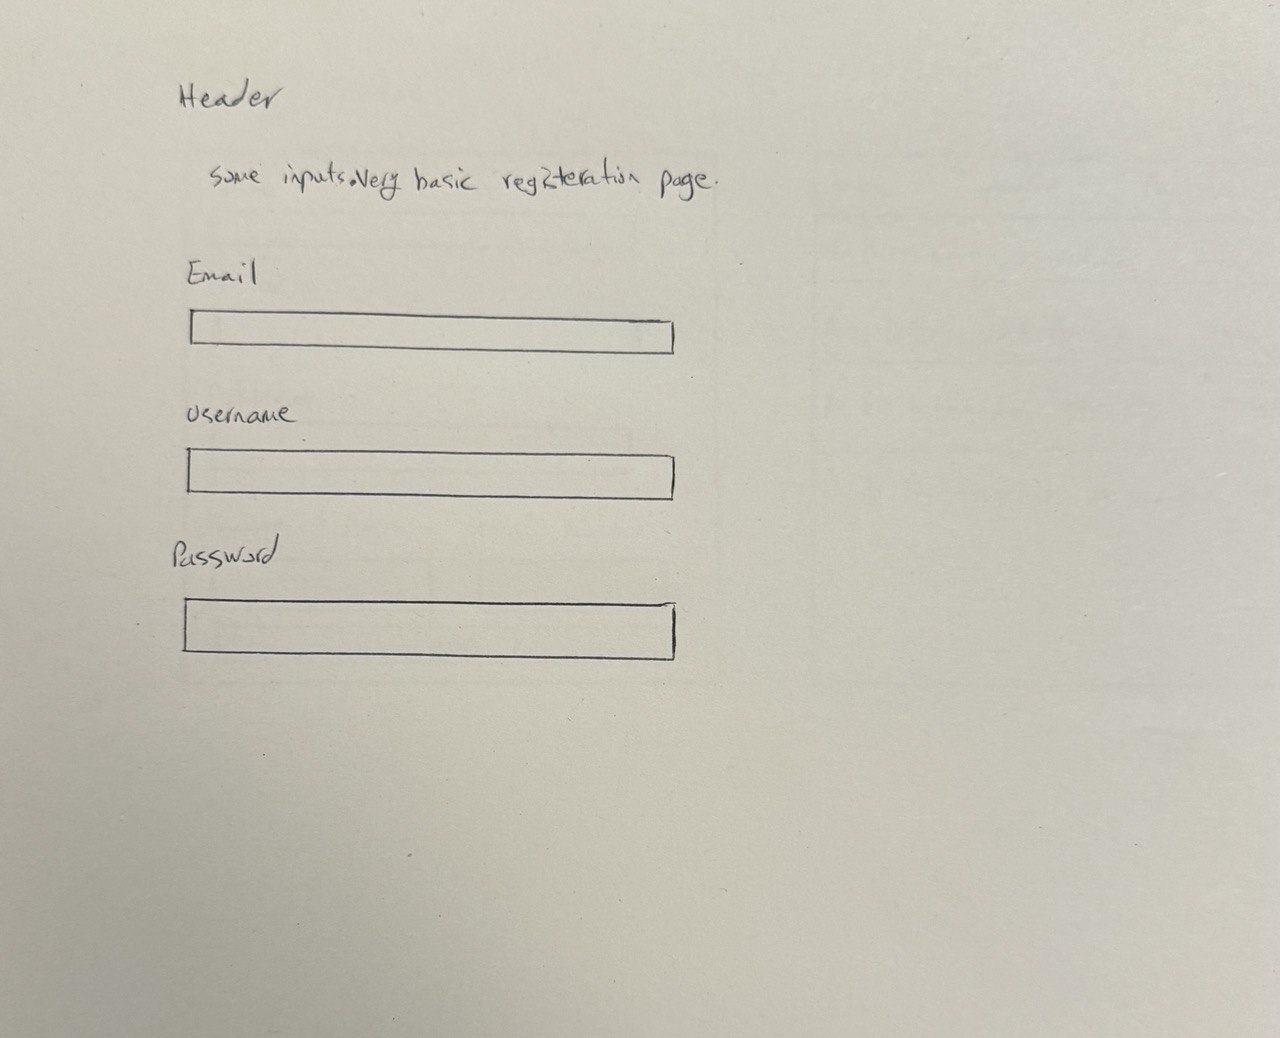 Header
some inputs. Very basic registeration page.
Email
Username
Password